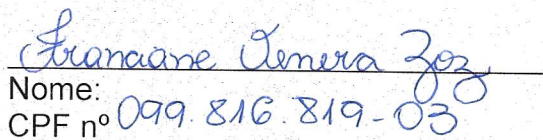 Franciane Venera Zoz
Nome:
CPF nº 099.816.819-03